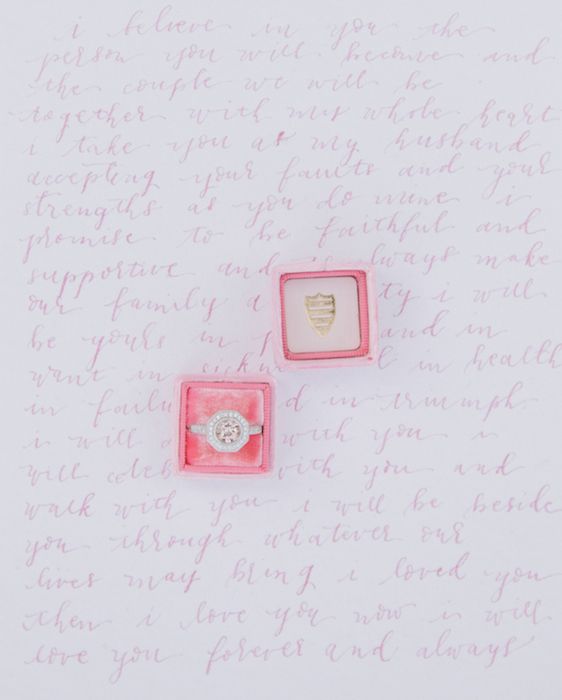 i believe in you the
person you will become and
the couple we will be
together with my whole heart
i take you as my husband
accepting your faults and your
strengths as you do mine i
promise to be faithful and
supportive and always make
our family a i will
be yours in and in
want in in health
in d in triumph
i will with you i
will celeb with you and
walk with you i will be beside
you through whatever our
lives may bring i loved you
then i love you now i will
love you forever and always